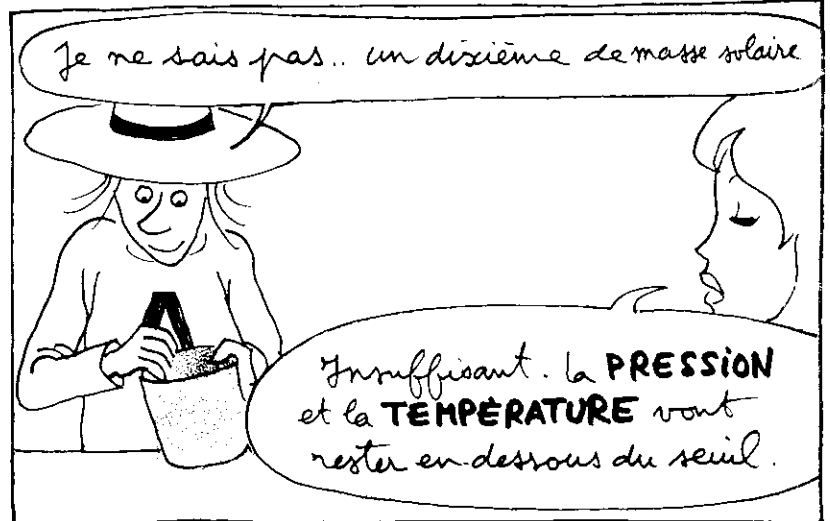 Je ne sais pas.. un dixième de masse solaire
Insuffisant. la PRESSION
et la TEMPÉRATURE vont
rester en-dessous du seuil.